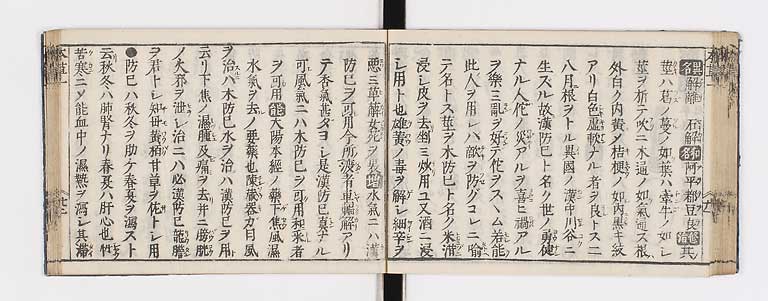 異名 解離 石解 和名 阿平都豆良 修治 其
莖ハ葛ノ蔓ノ如シ葉ハ牽牛ノ如シ
莖ヲ折テ吹ニ木通ノ如氣通ス根
外白ク内黄ノ桔梗ノ如内黒キ紋
アリ白色虚軟ナル者ヲ良トス二
八月根ヲトル異國ノ漢中川谷ニ
生スル故漢防已ト名ク世ノ勇健
ナル人佗ノ災アルヲ喜ヒ禍アル
ヲ樂ミ乱ヲ好テ佗ヲスヽム若能
此人ヲ用レハ敵ヲ防グコレニ喻
テ名トス莖ヲ木防已ト名ク米泔
浸シ皮ヲ去剉ミ炒用ユ又酒ニ浸
シ用ト也雄黄ノ毒ヲ解シ細辛ヲ
悪 三草薢女菀ヲ畏 増 水氣ニハ漢
防已ヲ可用今所渡者車輻解アリ
テ香氣甚ダヨシ是漢防已真ナル
可風氣ニハ木防已ヲ可用和乘者
ヲ可用 能 太陽本經ノ藥下焦風濕
水氣ヲ去ノ要藥也陳藏器カ曰風
ヲ治ハ木防已水ヲ治ハ漢防已ヲ用
云リ下焦ノ濕腫及痛ヲ去并ニ膀胱
ノ火邪ヲ泄シ治ニハ必漢防已龍膽
ヲ君トシ知母黄栢甘草ヲ佐トシ用
●防已ハ秋冬ヲ助ケ春夏ヲ瀉スト
云秋冬ハ肺腎ナリ春夏ハ肝心也性
苦寒ニメ能血中ノ濕熱ヲ瀉シ其滞